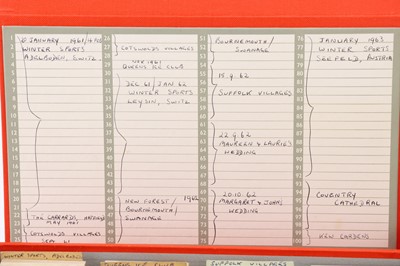 JANUARY 1961/
WINTER SPORTS
ADELBODEN, SWITZ
THE GARRARDS,
MAY 1961
COTSWOLDS VILLAGES
SEPT 61
COTSWOLDS VILLAGES
OCT 1961
QUEENS ICE CLUB
DEC 61/JAN 62
WINTER SPORTS
LEYSIN, SWITZ
NEW FOREST/ 1962
BOURNEMOUTH/
SWANAGE
BOURNEMOUTH/
SWANAGE
15.9.62
SUFFOLK VILLAGES
22.9.62
MAUREEN & LAURIE'S
WEDDING
20.10.62
MARGARET & JOHN'S
WEDDING
JANUARY 1963
WINTER SPORTS
SEEFELD, AUSTRIA
COVENTRY
CATHEDRAL
KEW GARDENS
WINTER SPORTS, ADELBODEN
QUEENS ICE CLUB
SUFFOLK VILLAGES